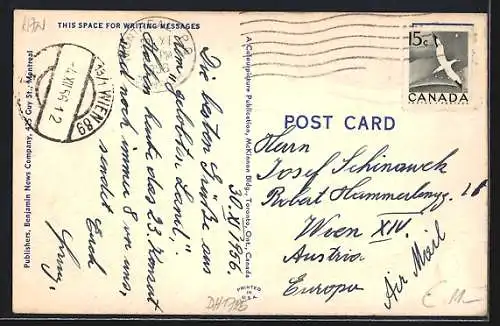 THIS SPACE FOR WRITING MESSAGES
30. XI 1956.
Die besten Grüße aus
dem "gelobten Land",
Haben heute das 23. Konzert
und noch immer 8 vor uns,
sendet Euch
Publishers, Benjamin News Company, Guy St., Montreal
A Colourpicture Publication, McKinnon Bldg., Toronto, Ont., Canada
PRINTED IN U.S.A.
WIEN 89
-4.XII.56 12
15c
CANADA
POST CARD
Herrn
Josef Schinawek
Robert Hammerlingg.
Wien XIV.
Austria
Europa
Air Mail